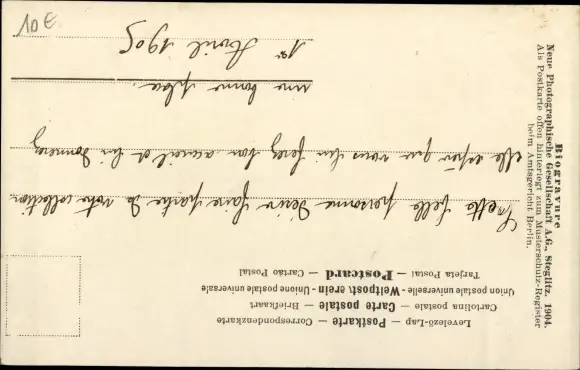 Levelező-Lap — Postkarte — Correspondenzkarte
Cartolina postale — Carte postale — Briefkaart
Union postale universelle - Weltpostverein - Unione postale universale
Tarjeta Postal — Postcard — Cartão Postal
Cette belle personne désire faire partie de votre collection
elle espère que vous lui ferez bon accueil et lui donnerez
une bonne place.
1er Avril 1905
Biogravure
Neue Photographische Gesellschaft A.G., Steglitz. 1904.
Als Postkarte offen hinterlegt zum Musterschutz-Register
beim Amtsgericht Berlin.
10€